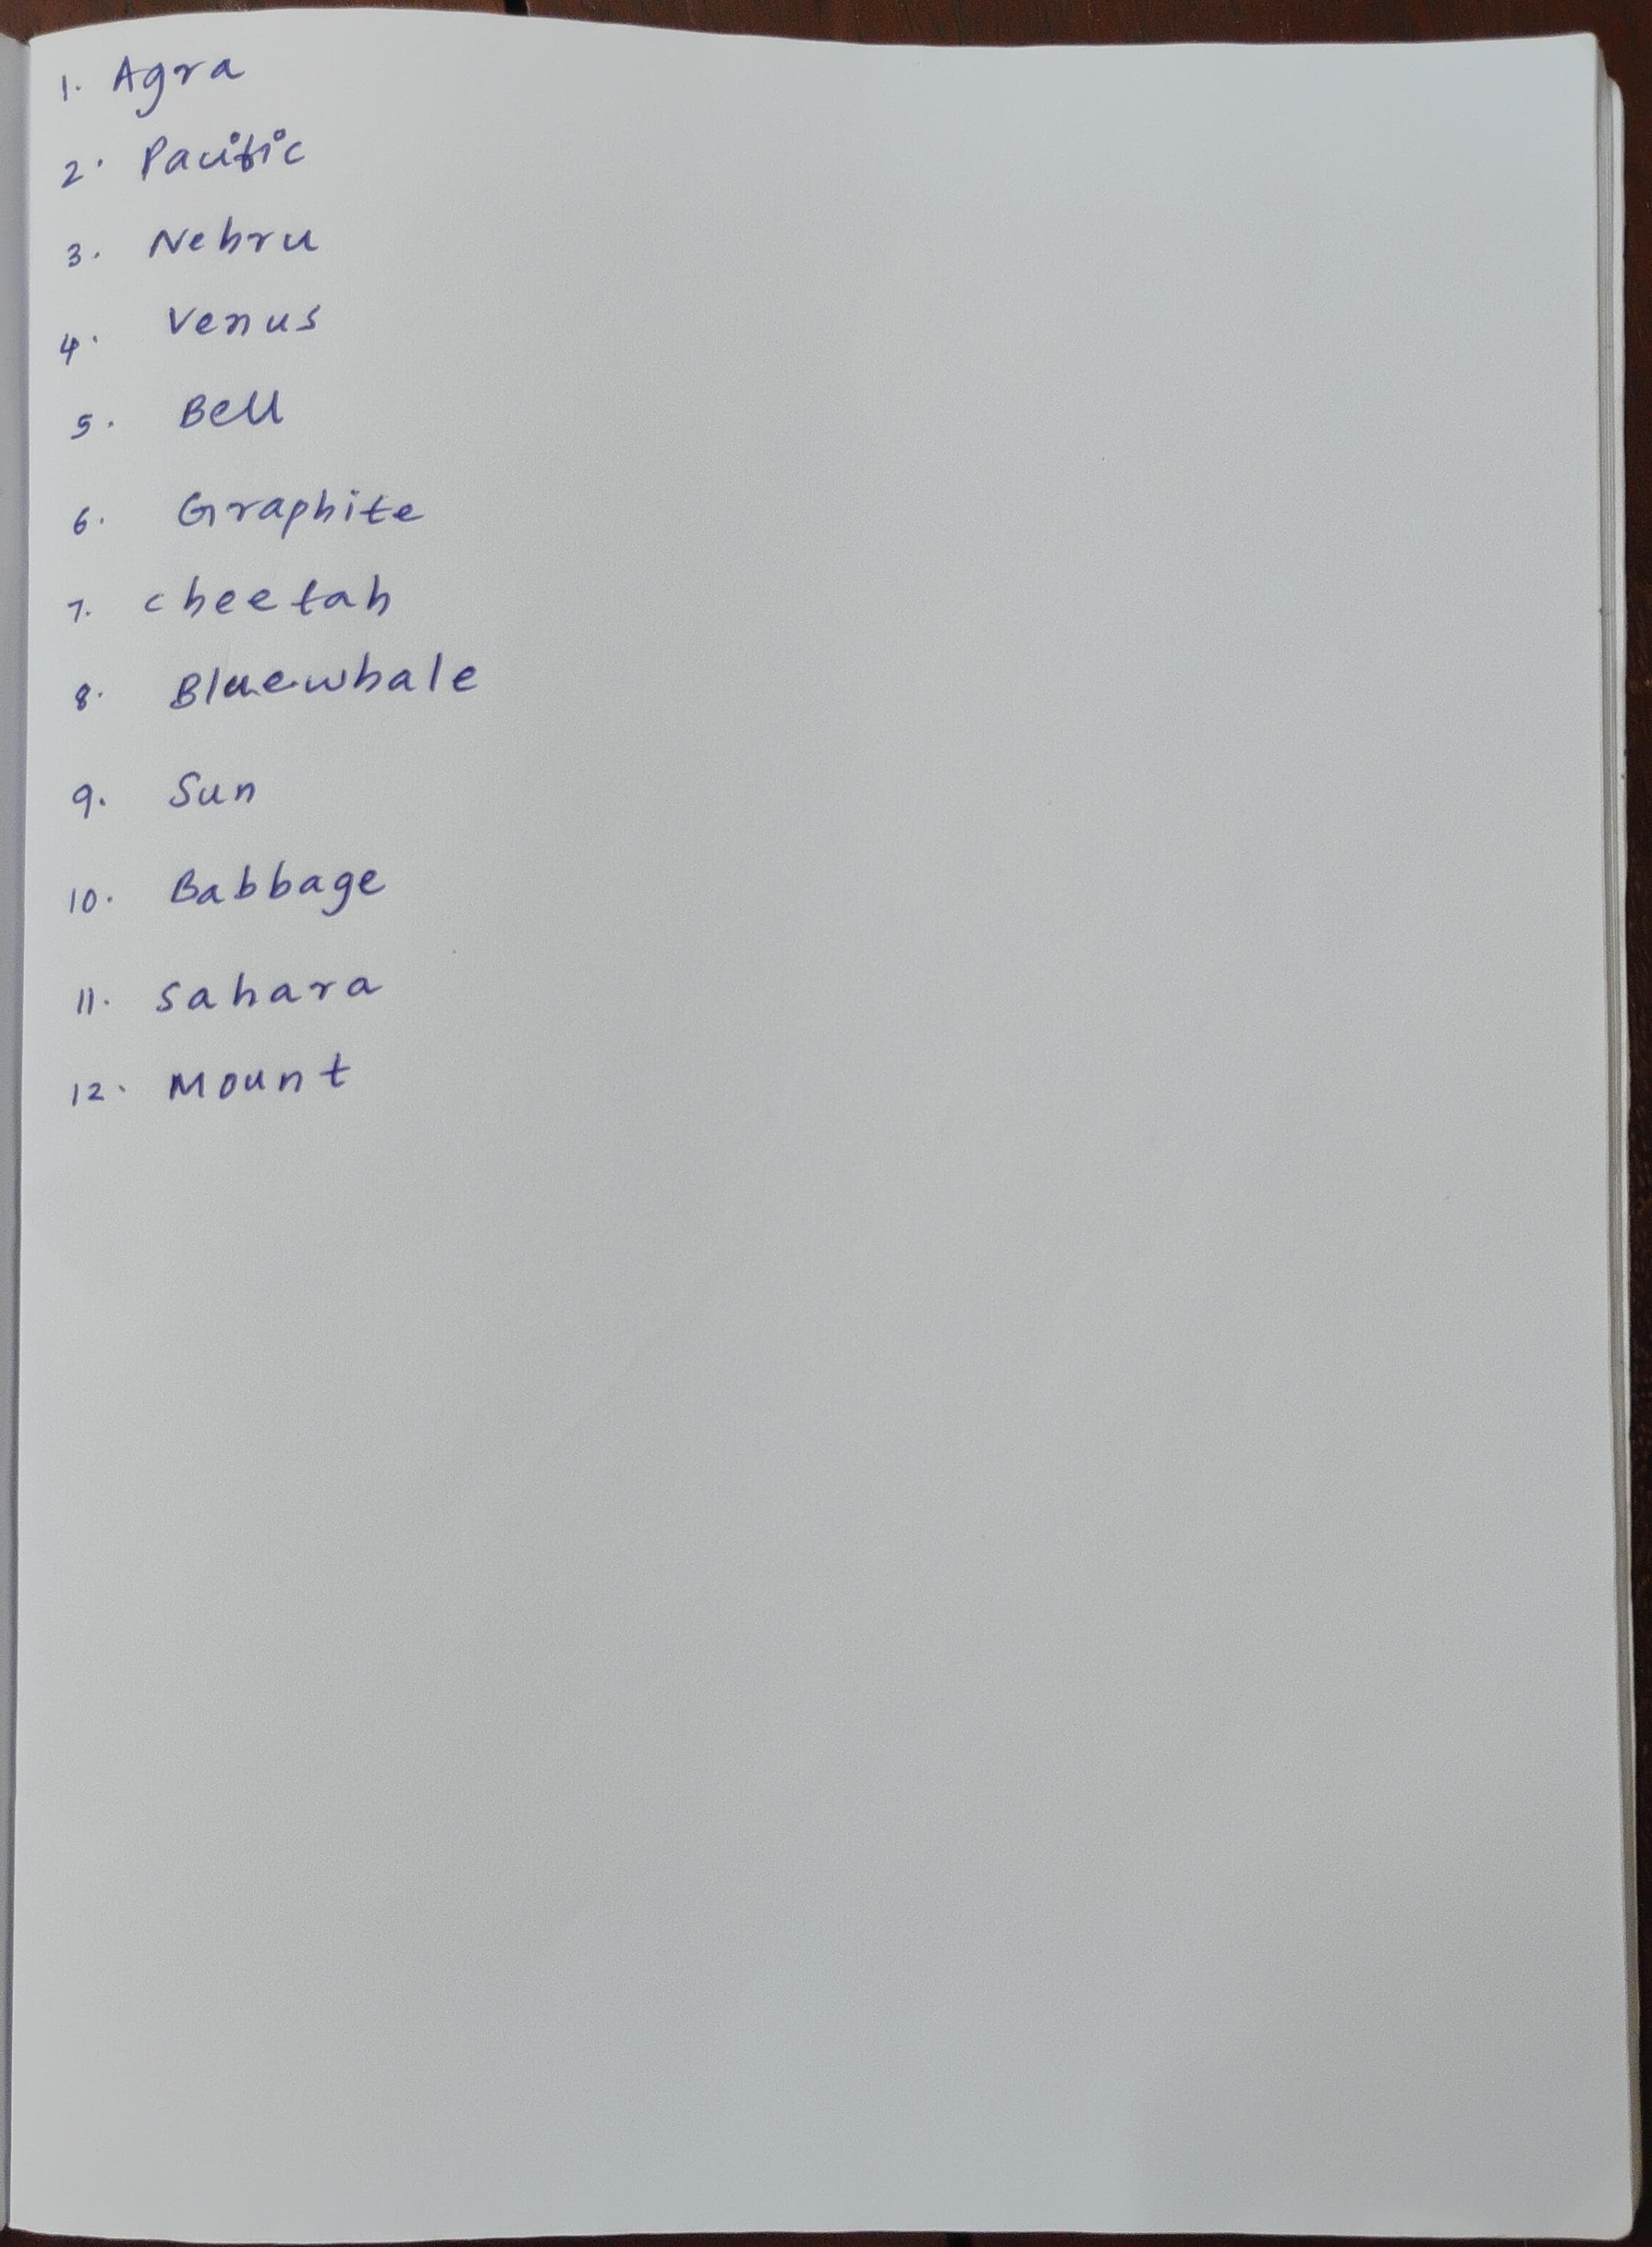 1. Agra
2. Pacific
3. Nehru
4. Venus
5. Bell
6. Graphite
7. cheetah
8. Bluewhale
9. Sun
10. Babbage
11. Sahara
12. Mount